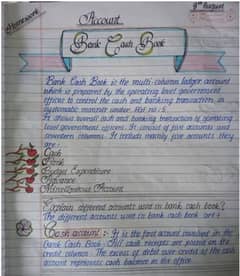 Homework
9th August
Account
Bank Cash Book
Bank Cash Book is the multi-column ledger account
which is prepared by the operating level government
offices to control the cash and banking transaction, in
systematic manner under. No. 5.
It shows overall cash and banking transaction of operating
level government offices. It consist of five accounts and
seventeen columns. It include mainly five accounts they
are:
Cash
Bank
Budget Expenditure
Advance
Miscellaneous Account
Explain different accounts used in bank cash book?
The different accounts used in bank cash book are:
Cash account :- It is the first account involved in the
Bank Cash Book. All cash receipts are posted on the
credit column. The excess of debit over credit of the cash
account represents cash balance in the office.